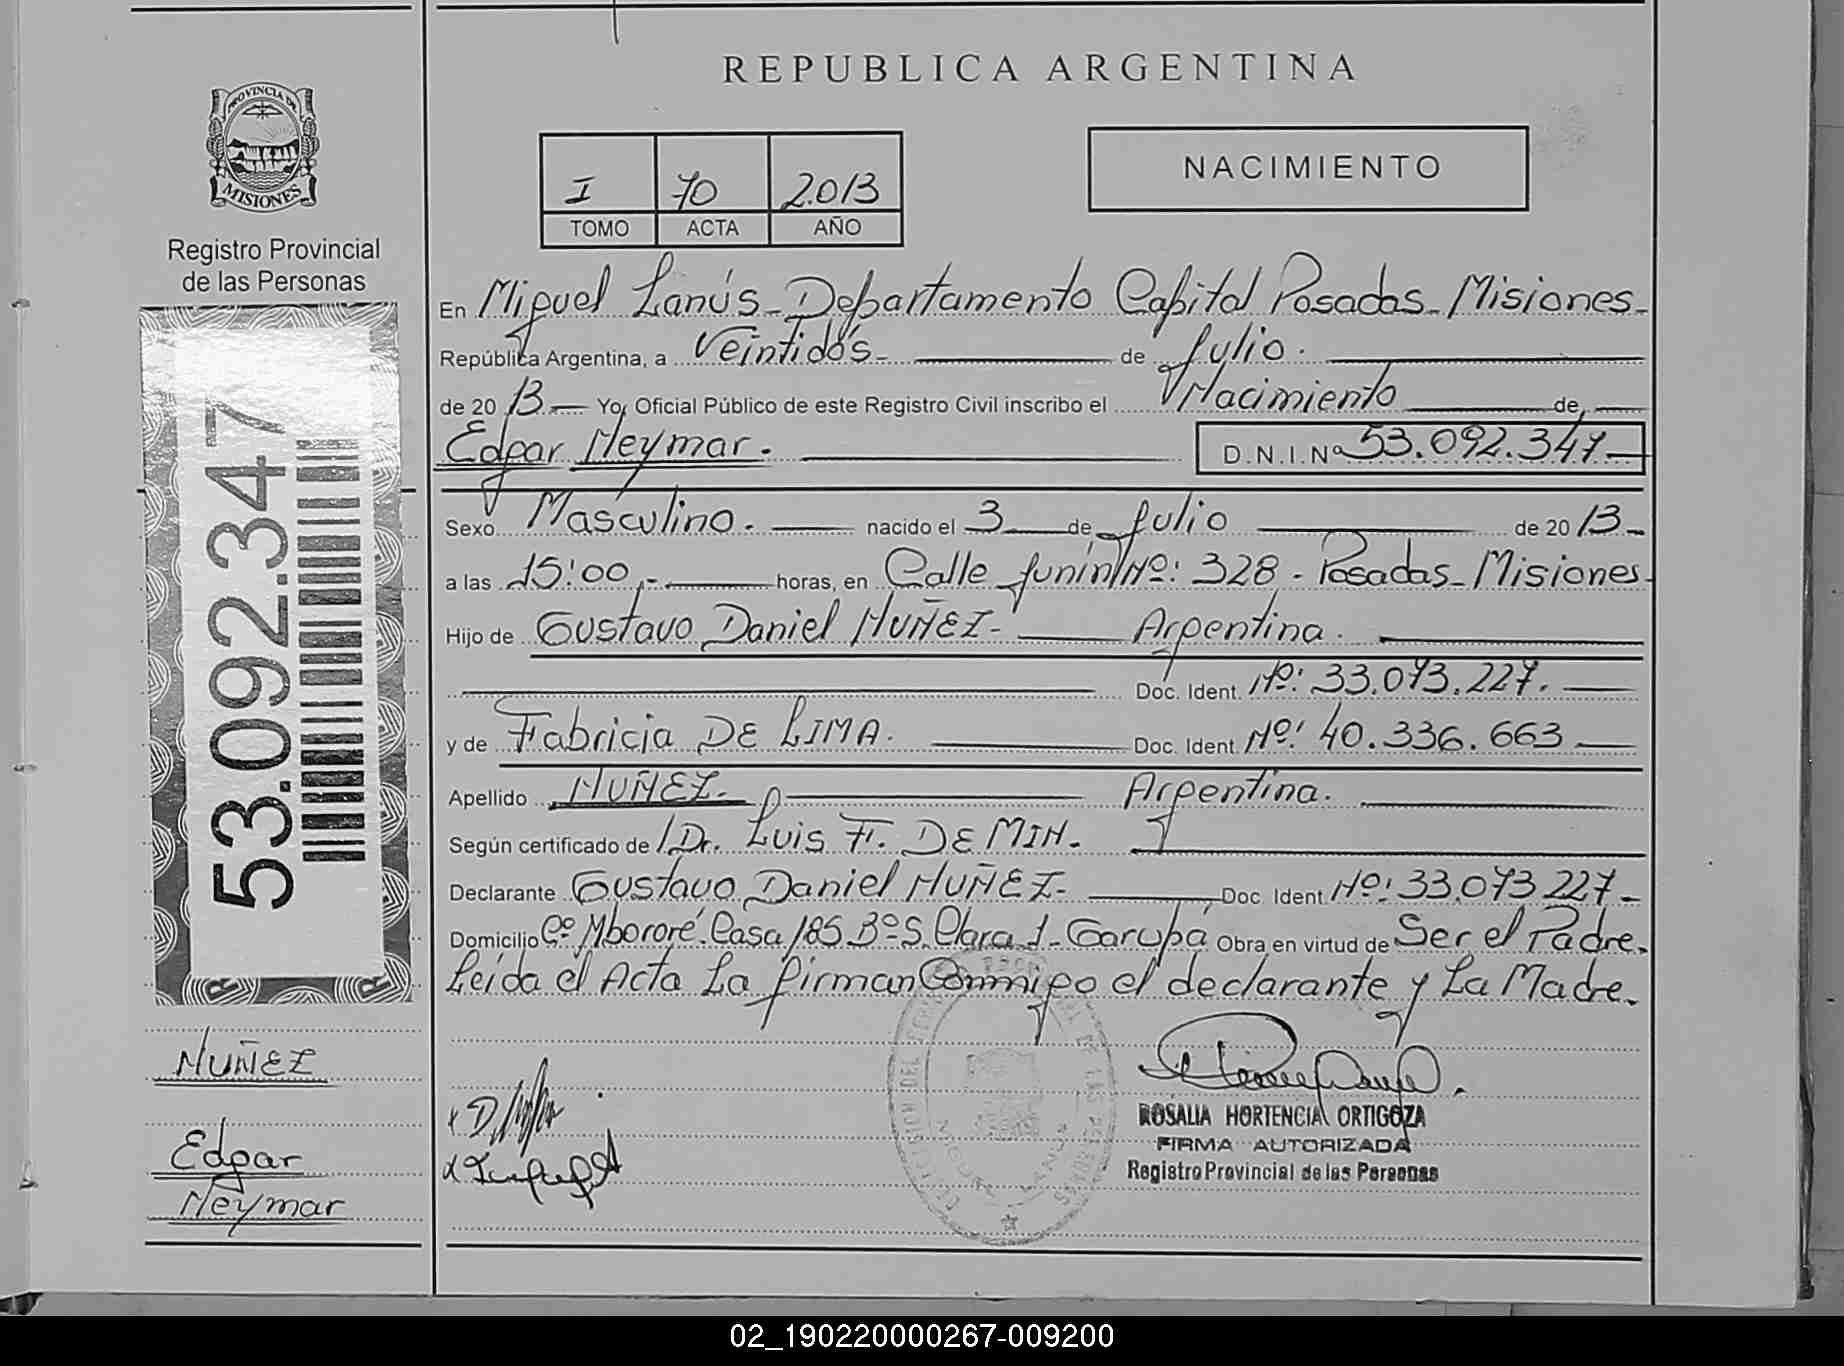 REPUBLICA ARGENTINA
PROVINCIA DE
MISIONES
Registro Provincial
de las Personas
I 70 2013
TOMO ACTA AÑO
NACIMIENTO
En Miguel Lanús - Departamento Capital Posadas - Misiones -
República Argentina, a Veintidós - de Julio.
de 20 13 - Yo, Oficial Público de este Registro Civil inscribo el Nacimiento de
Edgar Neymar. D.N.I. Nº 53.092.347
Sexo Masculino. nacido el 3 de Julio de 20 13 -
a las 15:00 - horas, en Calle Junín Nº: 328 - Posadas - Misiones
Hijo de Gustavo Daniel NUÑEZ - Argentina.
Doc. Ident. Nº: 33.073.227.
y de Fabricia DE LIMA. Doc. Ident. Nº: 40.336.663
Apellido NUÑEZ. Argentina.
Según certificado de Dr. Luis F. DE MIN.
Declarante Gustavo Daniel NUÑEZ - Doc. Ident. Nº: 33.073.227 -
Domicilio Cº Mbororé. Casa 185 Bº S. Clara 1 - Garupá Obra en virtud de Ser el Padre.
Leída el Acta La firman Conmigo el declarante y La Madre.
53.092.347
NUÑEZ
Edgar
Neymar
ROSALIA HORTENCIA ORTIGOZA
FIRMA AUTORIZADA
Registro Provincial de las Personas
02_190220000267-009200